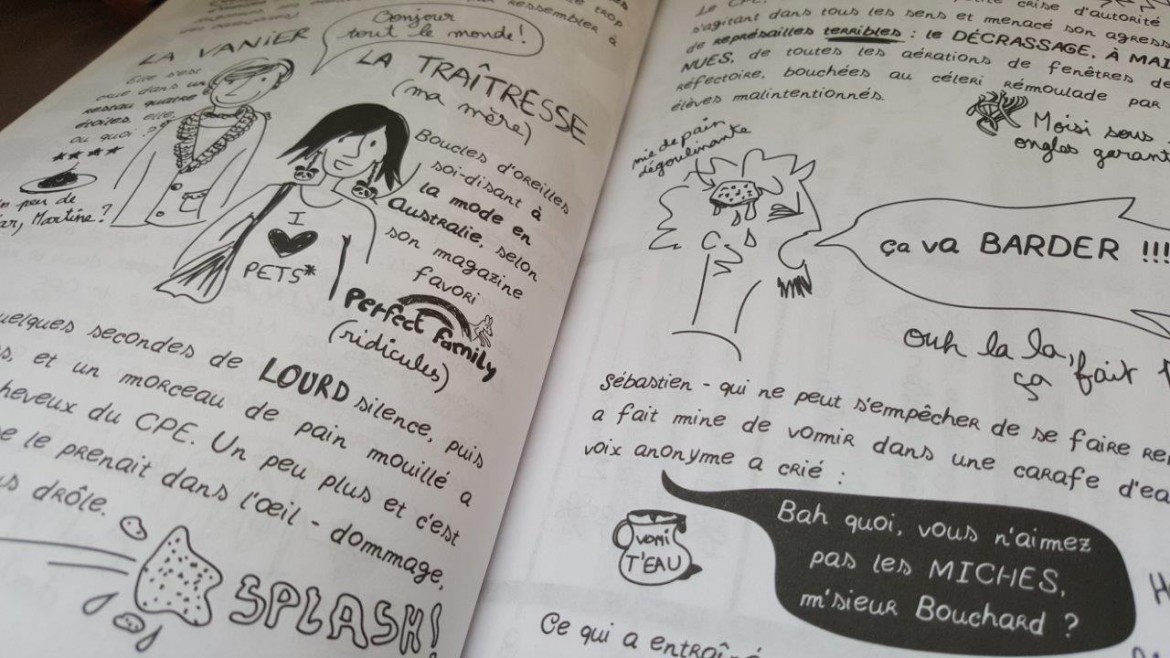 trop
ressembler à
Bonjour
tout le monde!
LA VANIER
Elle s'est
crue dans un
restau quatre
étoiles elle,
ou quoi ?
★★★★
peu de
Martine ?
LA TRAÎTRESSE
(ma mère)
Boucles d'oreilles
soi-disant à
la mode en
Australie, selon
son magazine
favori
Perfect family
(ridicules)
I
PETS*
quelques secondes de LOURD silence, puis
et un morceau de pain mouillé a
cheveux du CPE. Un peu plus et c'est
le prenait dans l'œil - dommage,
drôle.
SPLASH!
Le CPE
crise d'autorité
s'agitant dans tous les sens et menacé son
de représailles terribles : le DÉCRASSAGE, À
NUES, de toutes les aérations de fenêtres
réfectoire, bouchées au céleri rémoulade par
élèves malintentionnés.
Moisi sous
ongles
mie de pain
dégoulinante
ça va BARDER !!!
ouh la la,
ça fait
Sébastien - qui ne peut s'empêcher de se faire
a fait mine de vomir dans une carafe
voix anonyme a crié :
VOMI
T'EAU
Bah quoi, vous n'aimez
pas les MICHES,
m'sieur Bouchard ?
Ce qui a